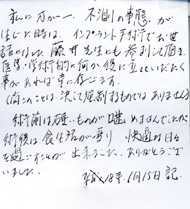 私に万が一、不測の事態が
はじた時は、インプラント手術でお世
話になった藤井先生にも参加して頂き、
医学・学術研究の何か役に立ていただく
事があれば幸に存じます。
(尚このことは決して強制するものではありません)
術前は硬いものが噛めませんでしたが
術後は食生活が変り 快適な日々
を過ごすことが出来ました。ありがとうござ
いました。
平成18年1月15日記